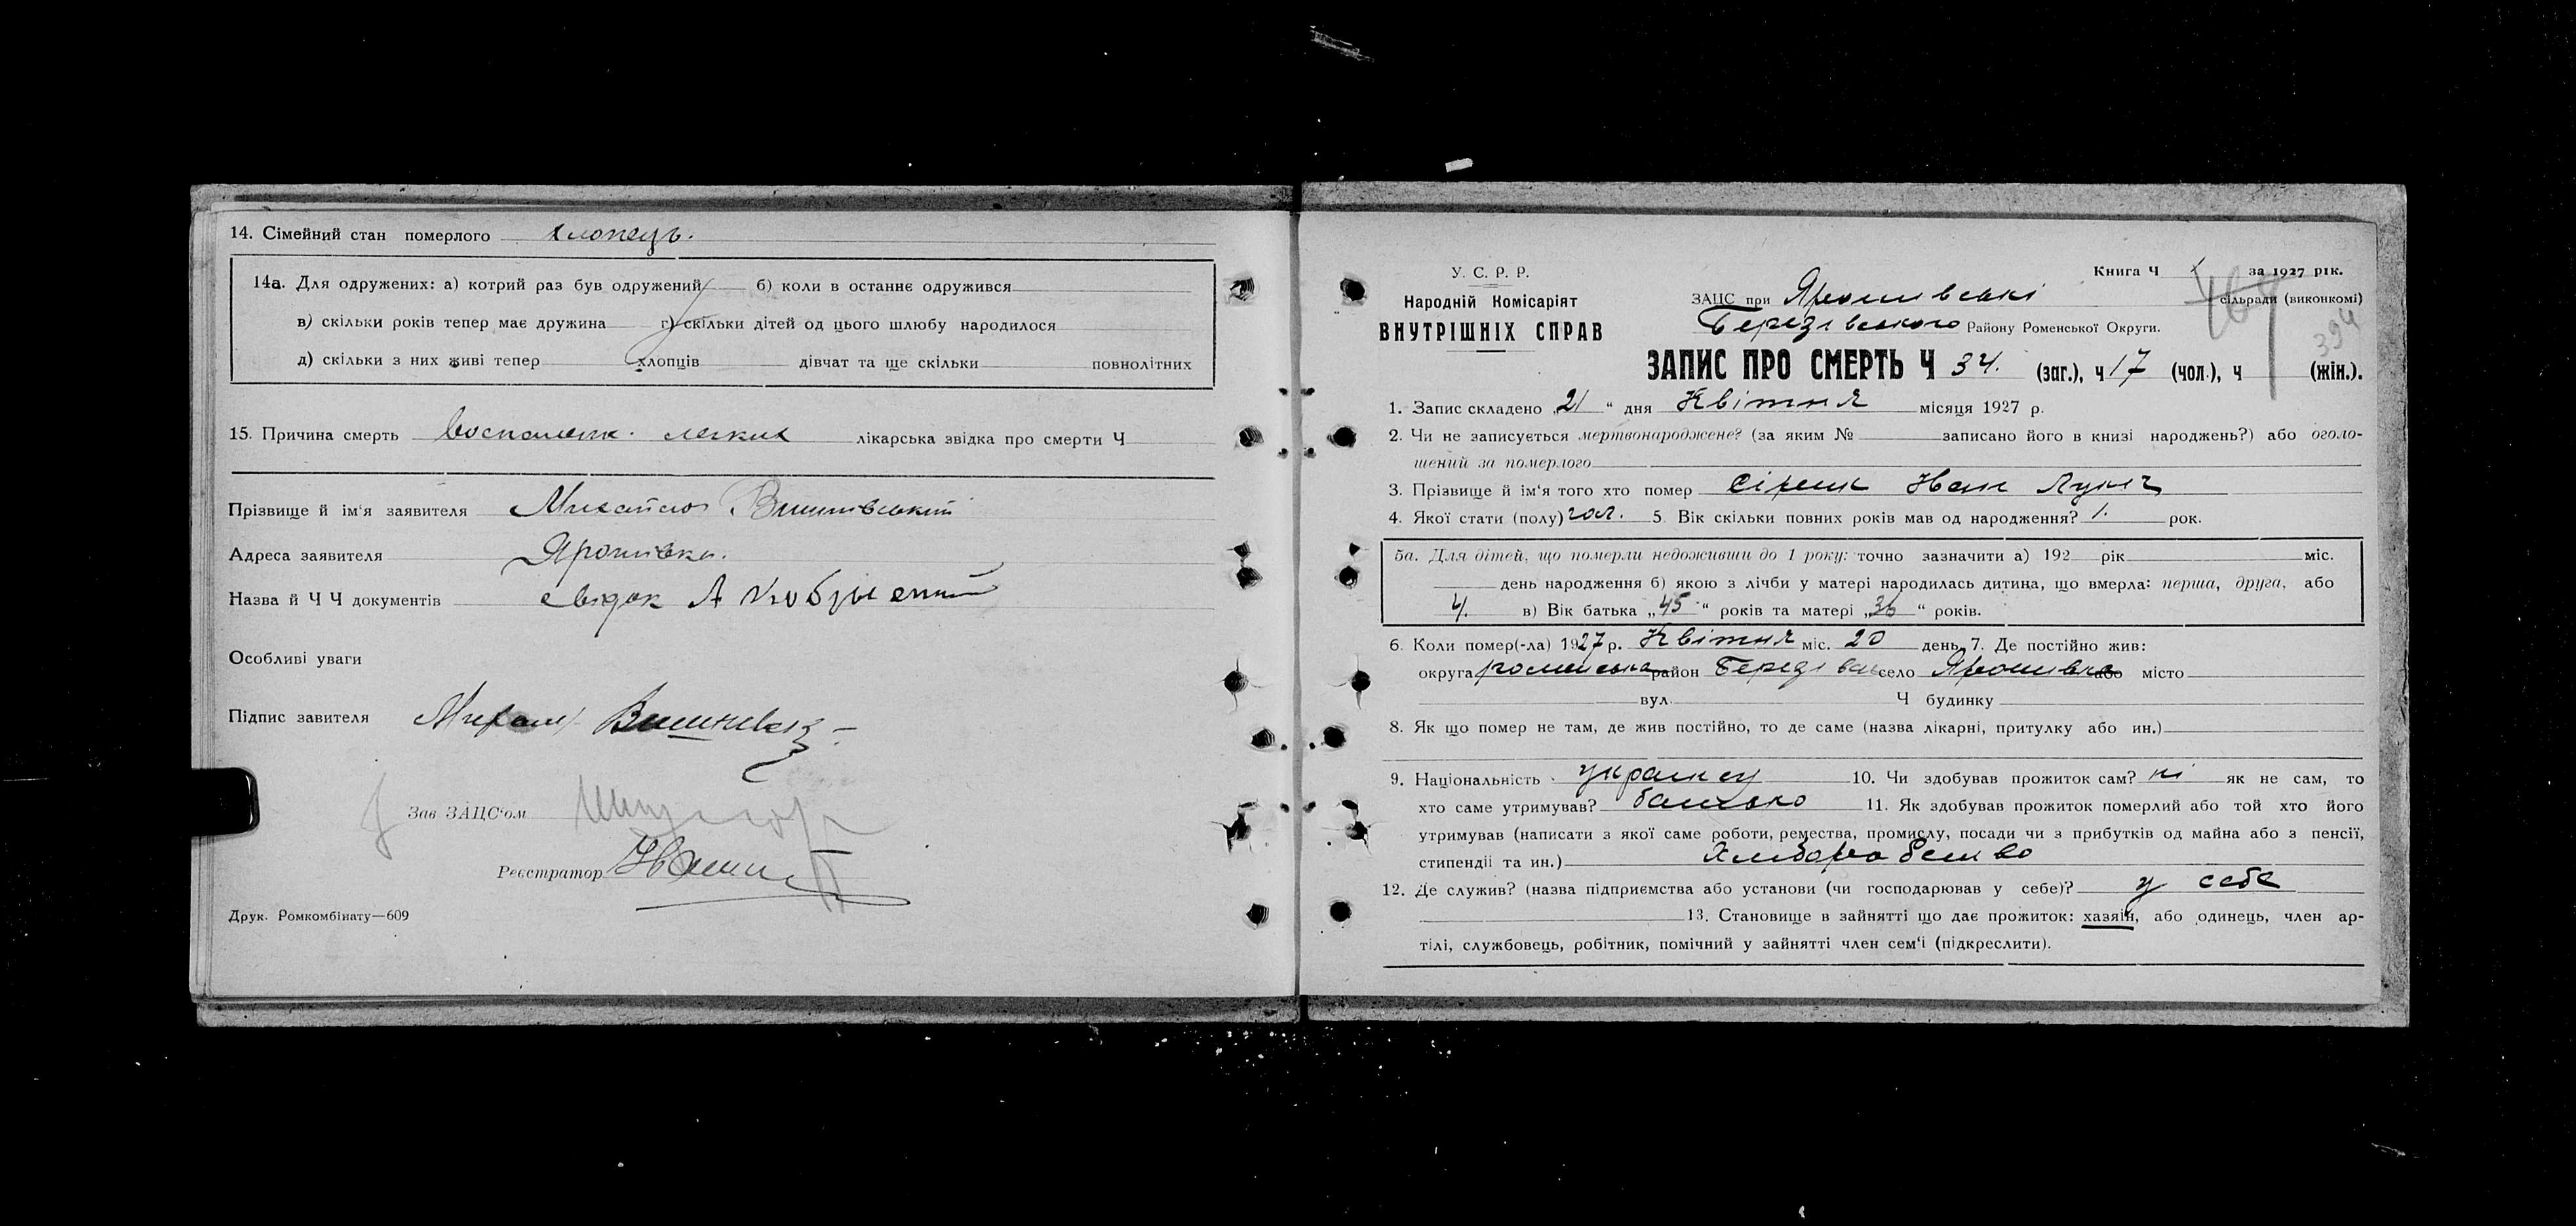 14. Сімейний стан померлого хлопець.
14а. Для одружених: а) котрий раз був одружений б) коли в останнє одружився
в) скільки років тепер має дружина г) скільки дітей од цього шлюбу народилося
д) скільки з них живі тепер хлопців дівчат та ще скільки повнолітних
15. Причина смерть воспалет. легких лікарська звідка про смерти Ч
Прізвище й ім'я заявителя Михайло
Адреса заявителя Ярошівка.
Назва й Ч Ч документів свідок А
Особливі уваги
Підпис завителя
Зав ЗАЦС'ом
Реєстратор
Друк. Ромкомбінату—609
У. С. Р. Р.
Народній Комісаріят
ВНУТРІШНІХ СПРАВ
Книга Ч за 1927 рік.
ЗАЦС при Ярошівські сільради (виконкомі)
Березівського Району Роменської Округи.
394
ЗАПИС ПРО СМЕРТЬ Ч 34. (заг.), ч 17 (чол.), ч (жін.).
1. Запис складено „21“ дня Квітня місяця 1927 р.
2. Чи не записується мертвонароджене? (за яким № записано його в книзі народжень?) або оголо-
шений за померлого
3. Прізвище й ім'я того хто помер Сірик Иван Лукич
4. Якої стати (полу) чол. 5. Вік скільки повних років мав од народження? 1. рок.
5а. Для дітей, що померли недоживши до 1 року: точно зазначити а) 192 рік міс.
день народження б) якою з лічби у матері народилась дитина, що вмерла: перша, друга, або
4. в) Вік батька „45“ років та матері „36“ років.
6. Коли помер(-ла) 1927 р. Квітня міс. 20 день 7. Де постійно жив:
округа роменська район Березівськ село Ярошівка або місто
вул. Ч будинку
8. Як що помер не там, де жив постійно, то де саме (назва лікарні, притулку або ин.)
9. Національність украінец 10. Чи здобував прожиток сам? ні як не сам, то
хто саме утримував? батько 11. Як здобував прожиток померлий або той хто його
утримував (написати з якої саме роботи, ремества, промислу, посади чи з прибутків од майна або з пенсії,
стипендії та ин.) Хлиборобство
12. Де служив? (назва підприємства або установи (чи господарював у себе)? у себе
13. Становище в зайнятті що дає прожиток: хазяїн, або одинець, член ар-
тілі, службовець, робітник, помічний у зайнятті член сем'ї (підкреслити).